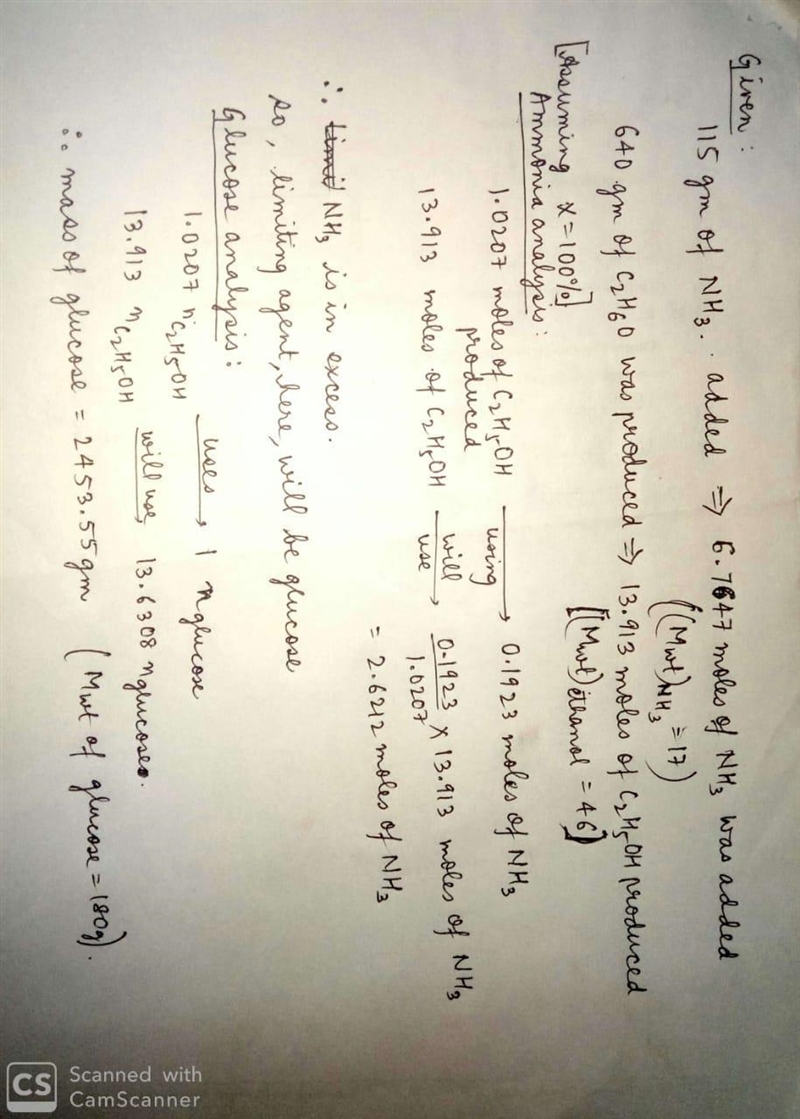 Given :
115 gm of NH3. added ⇒ 6.7647 moles of NH3 was added
((Mwt)NH3 = 17)
640 gm of C2H6O was produced ⇒ 13.913 moles of C2H5OH produced
[(Mwt)ethanol = 46)
[Assuming X=100%]
Ammonia analysis :
1.0207 moles of C2H5OH produced using → 0.1923 moles of NH3
13.913 moles of C2H5OH will use → 0.1923/1.0207 × 13.913 moles of NH3
= 2.6212 moles of NH3
∴ Limit NH3 is in excess.
so, limiting agent, here, will be glucose
Glucose analysis :
1.0207 nC2H5OH uses → 1 nglucose
13.913 nC2H5OH will use → 13.6308 nglucose.
∴ mass of glucose = 2453.55 gm (Mwt of glucose = 180g).
CS Scanned with
CamScanner